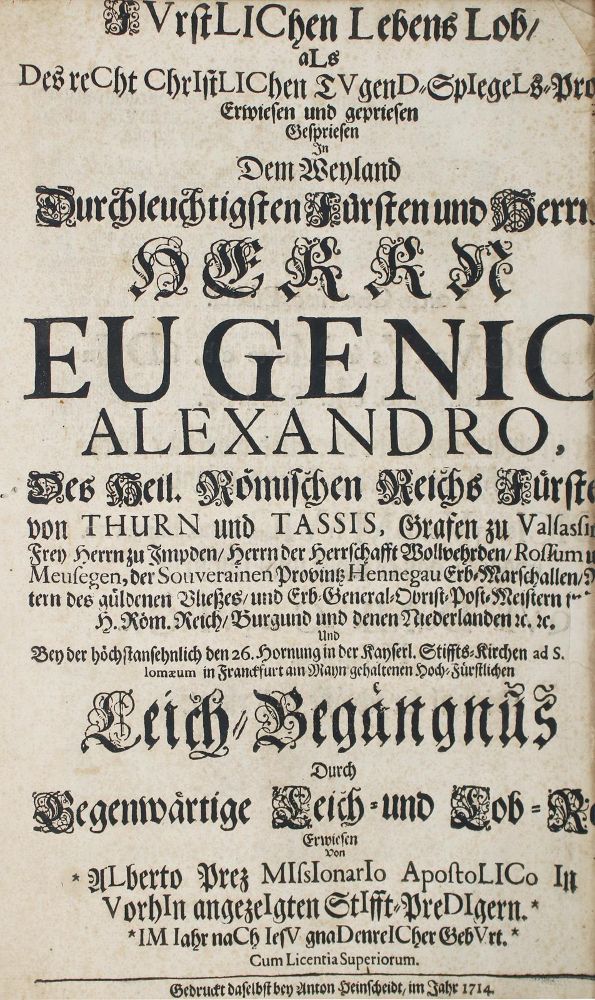 FVrstLIChen Lebens Lob/
aLs
Des reCht ChrIstLIChen TVgenD-SpIegeLs-Pro
Erwiesen und gepriesen
Gespriesen
In
Dem Weyland
Durchleuchtigsten Fürsten und Herrn
HERRN
EUGENIO
ALEXANDRO,
Des Heil. Römischen Reichs Fürste
von THURN und TASSIS, Grafen zu Valsassin
Frey Herrn zu Impden/ Herrn der Herrschafft Wollwehrden/ Rossum u
Meusegen, der Souverainen Provintz Hennegau Erb-Marschallen/
tern des güldenen Vließes/ und Erb-General-Obrist-Post-Meistern im
H. Röm. Reich/ Burgund und denen Niederlanden ꝛc. ꝛc.
Und
Bey der höchstansehnlich den 26. Hornung in der Kayserl. Stiffts-Kirchen ad S.
lomæum in Franckfurt am Mayn gehaltenen Hoch-Fürstlichen
Leich-Begängnüs
Durch
Gegenwärtige Leich-und Lob-Re
Erwiesen
Von
* ALberto Prez MIssIonarIo ApostoLICo In
VorhIn angezeIgten StIfft-PreDIgern. *
* IM Iahr naCh IesV gnaDenreICher GebVrt. *
Cum Licentia Superiorum.
Gedruckt daselbst bey Anton Heinscheidt/ im Jahr 1714.